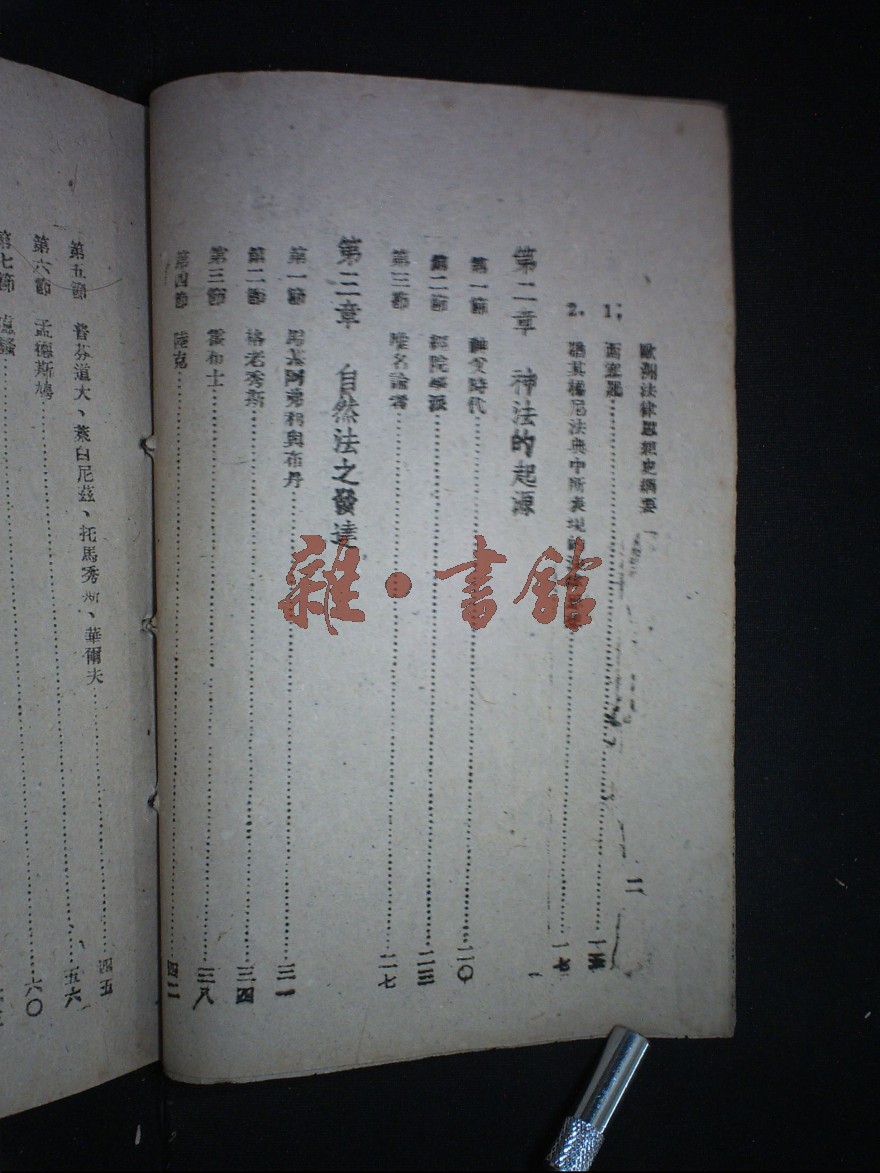 歐洲法律思想史綱要
二
1. 西塞羅 一五
2. 猶其權尼法典中所表現 一七
第二章 神法的起源
第一節 神父時代 二〇
第二節 經院學派 二三
第三節 唯名論者 二七
第三章 自然法之發達
第一節 馬基阿弗利與布丹 三一
第二節 格老秀斯 三四
第三節 霍布士 三八
第四節 陸克 四二
第五節 普芬道夫、萊白尼茲、托馬秀斯、華爾夫 四五
第六節 孟德斯鳩 五六
第七節 盧騷 六〇
雜·書館